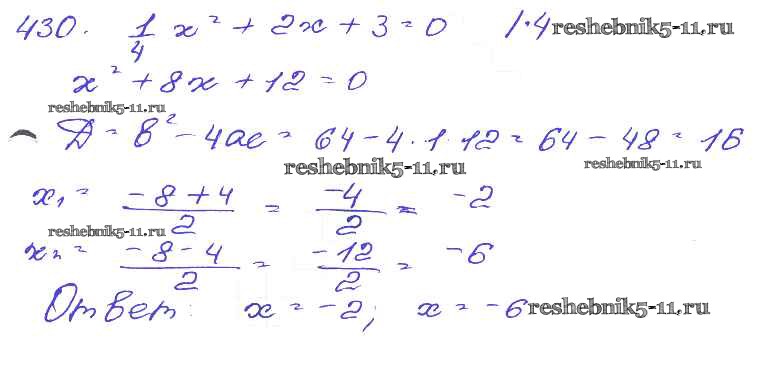 430. 1/4 x² + 2x + 3 = 0 /·4 reshebnik5-11.ru
x² + 8x + 12 = 0
reshebnik5-11.ru
Д = 8² - 4ac = 64 - 4·1·12 = 64 - 48 = 16
reshebnik5-11.ru reshebnik5-11.ru
x₁ = (-8 + 4)/2 = -4/2 = -2
reshebnik5-11.ru
x₂ = (-8 - 4)/2 = -12/2 = -6
Ответ: x = -2; x = -6 reshebnik5-11.ru